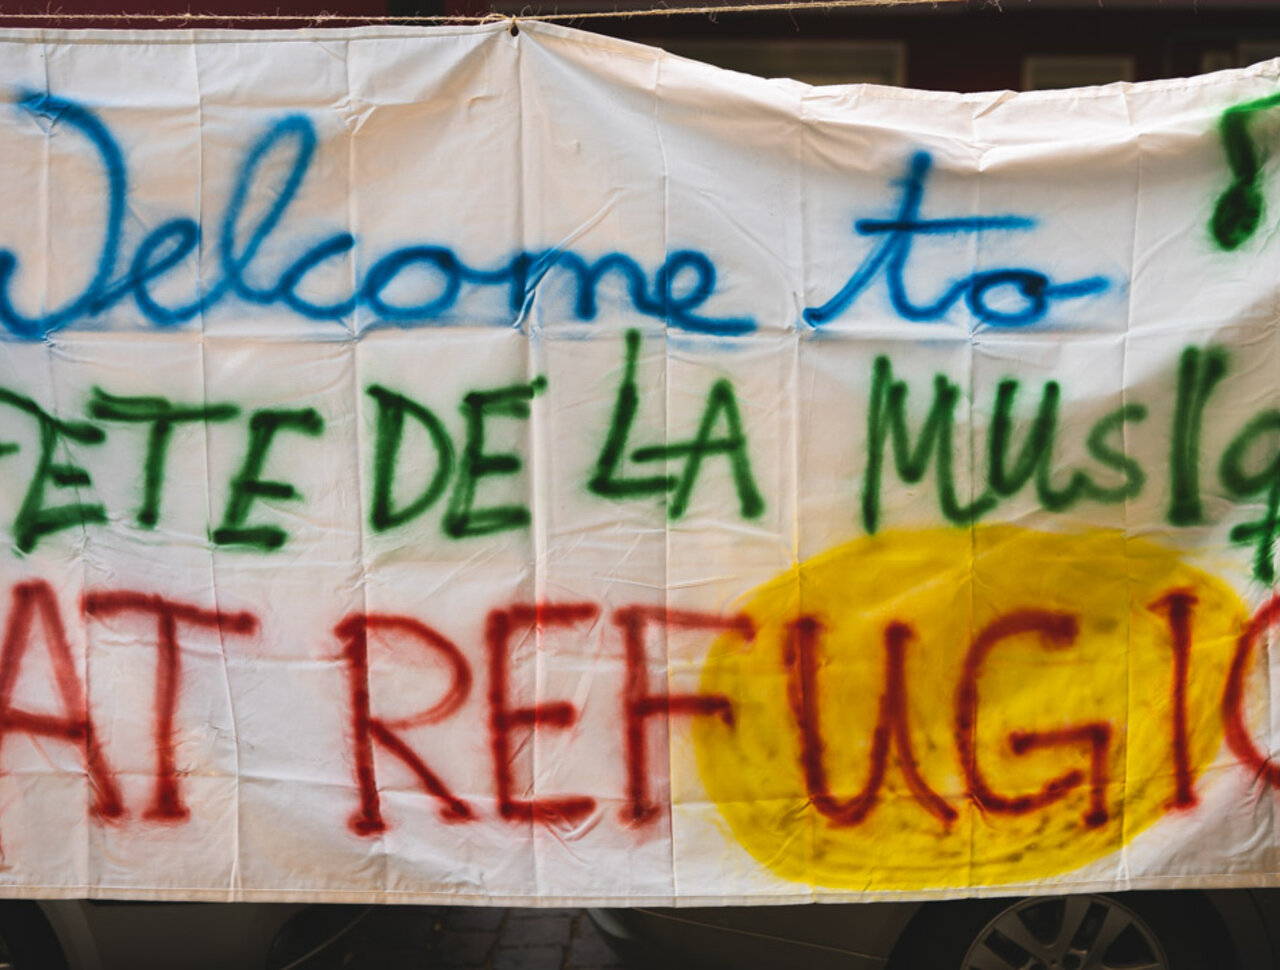 Welcome to
FETE DE LA MUSIq
AT REFUGIO